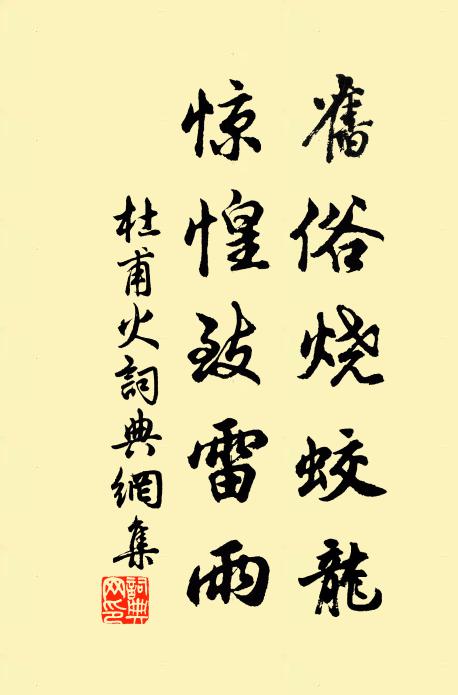 舊俗烧蛟龍
惊惶致雷雨
杜甫火詞典網集
詞典网印